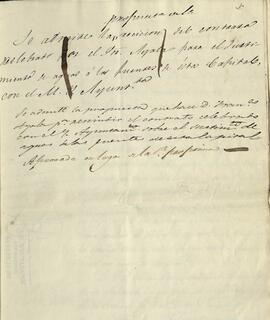 proposicion de la
Se admite la rescicion del contrato
celebrado por el Sr. Ayala para el surti-
miento de aguas á las fuentes de esta Capital,
con el M. Y. Ayunto
Se admite la proposicion que hace D. Franco
Ayala pa rescindir el contrato celebrado
con el Y. Ayuntamto sobre el surtimto de
aguas á las fuentes de esta Capital
Aprobada en lugar de la 1a proposicion